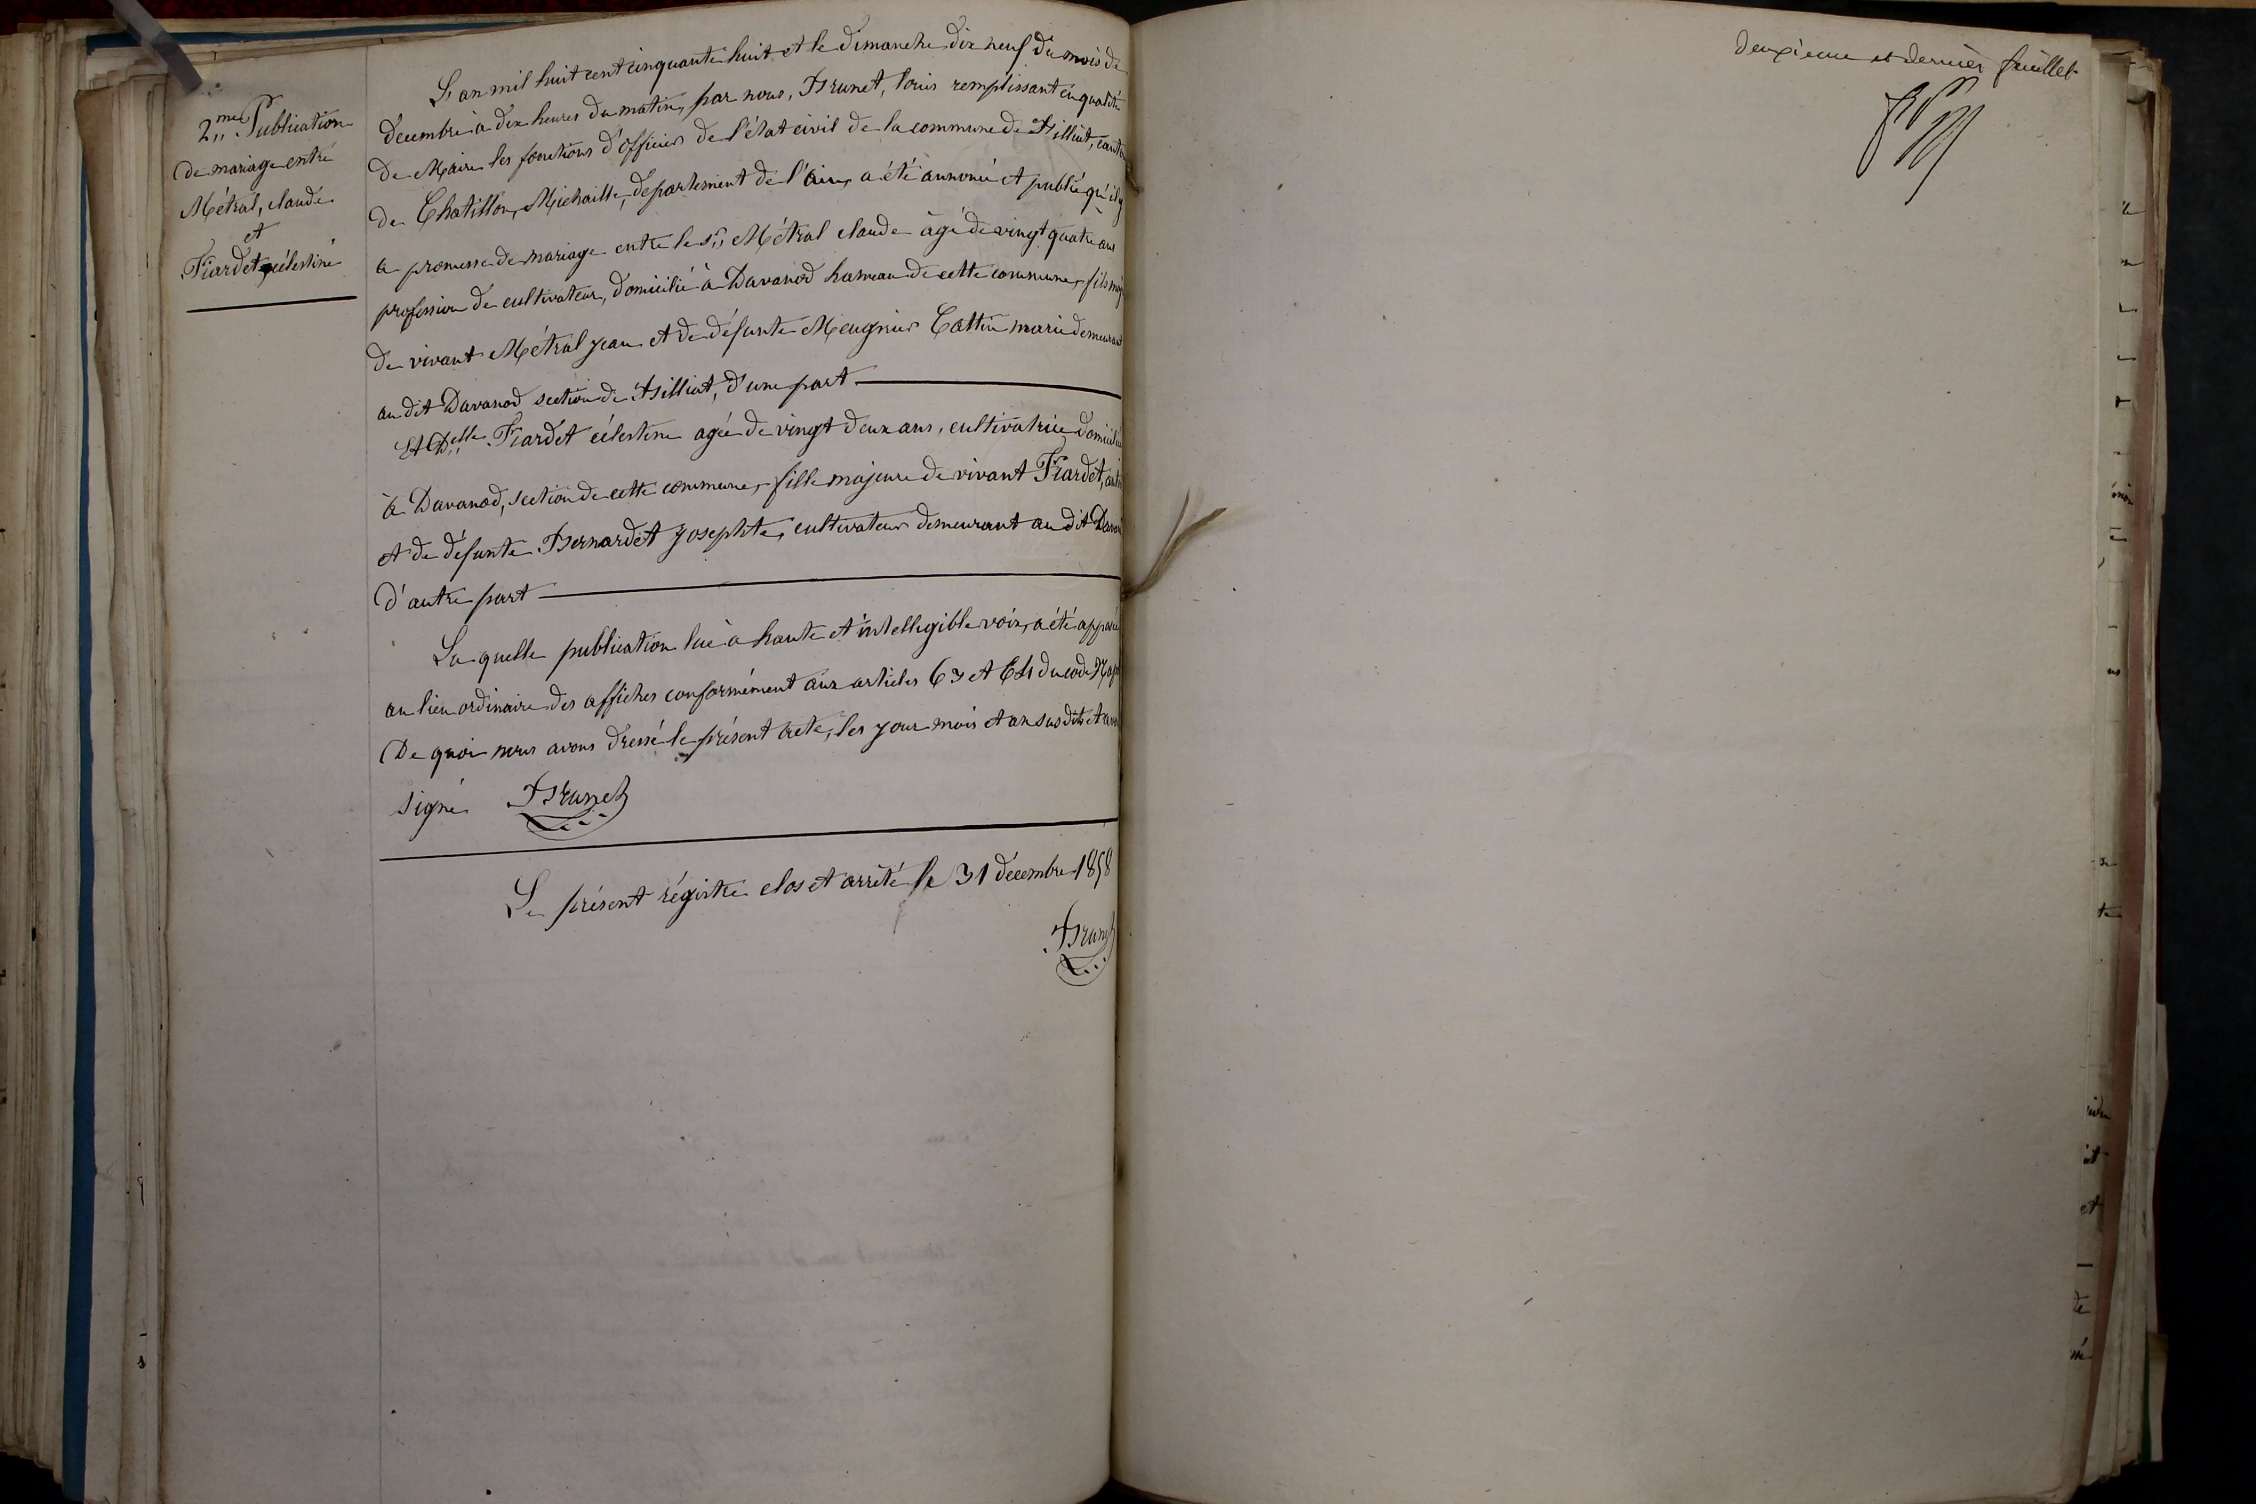 2.me Publication
de mariage entre
Métral, claude
et
Fiardet, célestine
L'an mil huit cent cinquante huit et le dimanche dix neuf du mois de
décembre à dix heures du matin, par nous, Brunet, louis remplissant en qualité
de Maire les fonctions d'officier de l'état civil de la commune de Billiat, canton
de Chatillon, Michaille, département de l'ain, a été annoncé et publié qu'il y
a promesse de mariage entre le sr. Métral claude âgé de vingt quatre ans
profession de cultivateur, domicilié à Davanod hameau de cette commune, fils maj
de vivant Métral jean et de défunte Meugnier Cattin marie demeurant
au dit Davanod section de Billiat, d'une part
Et Delle. Fiardet célestine agée de vingt deux ans, cultivatrice domiciliée
à Davanod, section de cette commune, fille majeure de vivant Fiardet,
et de défunte Bernardet josephte, cultivateur demeurant au dit Davan
d'autre part
La quelle publication lue à haute et intelligible voix, a été apposée
au lieu ordinaire des affiches conformément aux articles 63 et 64 du code Nap
De quoi nous avons dressé le présent acte, les jour mois et an susdits et avons
signé Brunet
Le présent régistre clos et arrêté le 31 décembre 1858
Brunet
deuxième et dernier feuillet